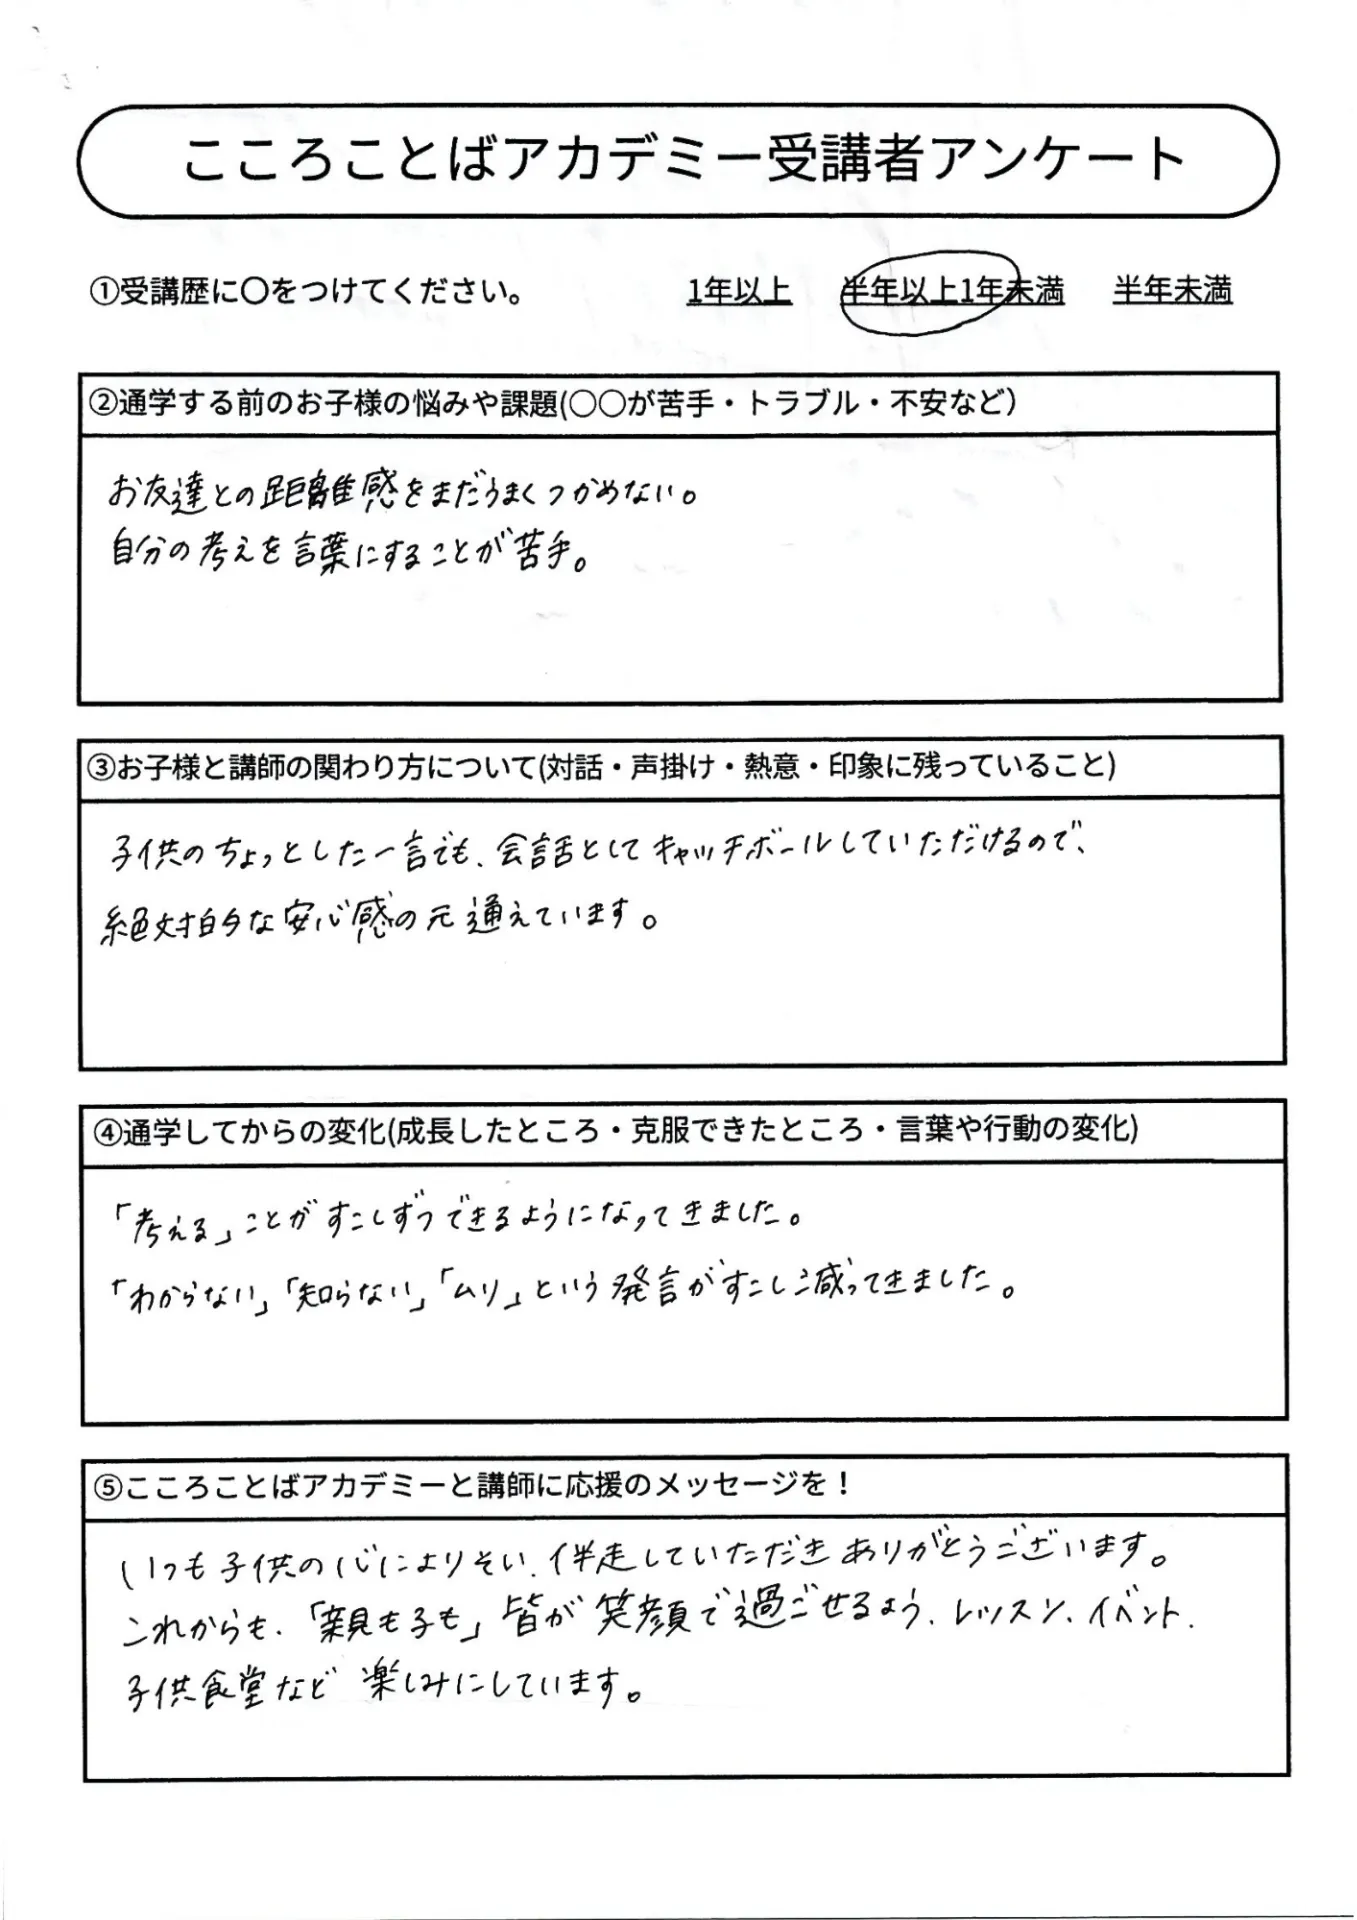 こころことばアカデミー受講者アンケート
①受講歴に〇をつけてください。 1年以上 半年以上1年未満 半年未満
②通学する前のお子様の悩みや課題(〇〇が苦手・トラブル・不安など）
お友達との距離感をまだうまくつかめない。
自分の考えを言葉にすることが苦手。
③お子様と講師の関わり方について(対話・声掛け・熱意・印象に残っていること)
子供のちょっとした一言でも、会話としてキャッチボールしていただけるので、
絶対的な安心感の元通えています。
④通学してからの変化(成長したところ・克服できたところ・言葉や行動の変化)
「考える」ことがすこしずつできるようになってきました。
「わからない」「知らない」「ムリ」という発言がすこし減ってきました。
⑤こころことばアカデミーと講師に応援のメッセージを！
いつも子供の心によりそい、伴走していただきありがとうございます。
これからも、「親も子も」皆が笑顔で過ごせるよう、レッスン、イベント、
子供食堂など楽しみにしています。